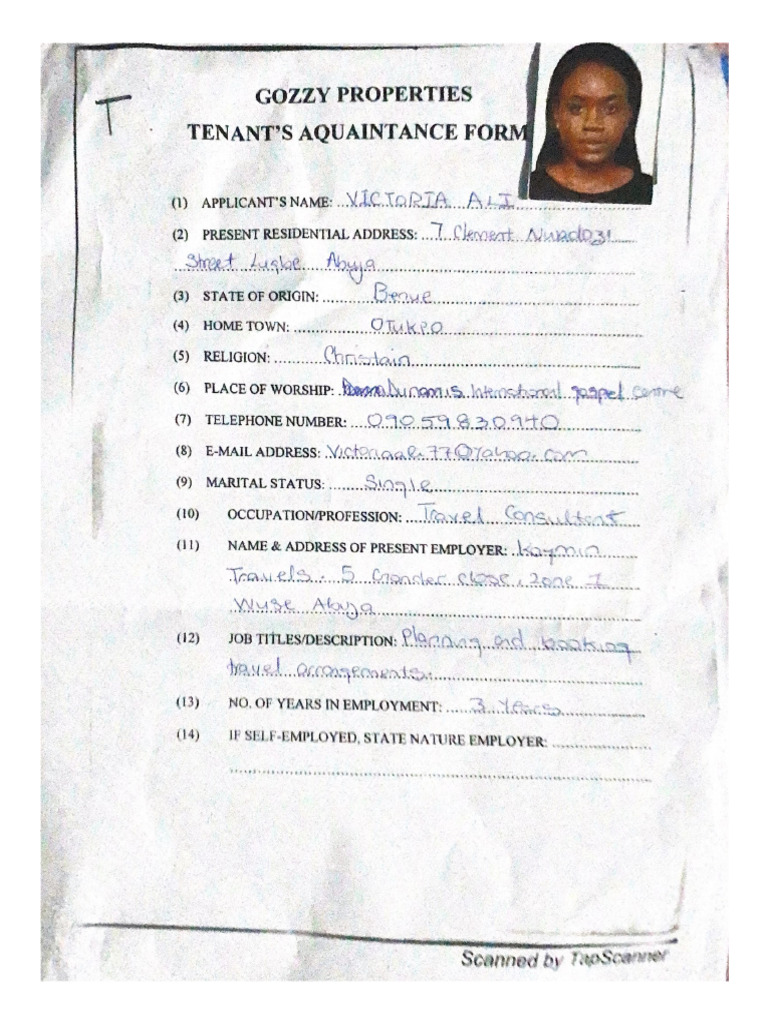 T
GOZZY PROPERTIES
TENANT'S AQUAINTANCE FORM
(1) APPLICANT'S NAME: VICTORIA ALI
(2) PRESENT RESIDENTIAL ADDRESS: 7 Clement Nwadozi
Street Lugbe Abuja
(3) STATE OF ORIGIN: Benue
(4) HOME TOWN: OTUKPO
(5) RELIGION: Christain
(6) PLACE OF WORSHIP: Dunamis International gospel centre
(7) TELEPHONE NUMBER: 09059830940
(8) E-MAIL ADDRESS:
(9) MARITAL STATUS: Single
(10) OCCUPATION/PROFESSION: Travel Consultant
(11) NAME & ADDRESS OF PRESENT EMPLOYER: Kaymin
Travels. 5 close, zone
Wuse Abuja
(12) JOB TITLES/DESCRIPTION: Planning and booking
travel arrangements.
(13) NO. OF YEARS IN EMPLOYMENT: 3 Years
(14) IF SELF-EMPLOYED, STATE NATURE EMPLOYER:
Scanned by TapScanner